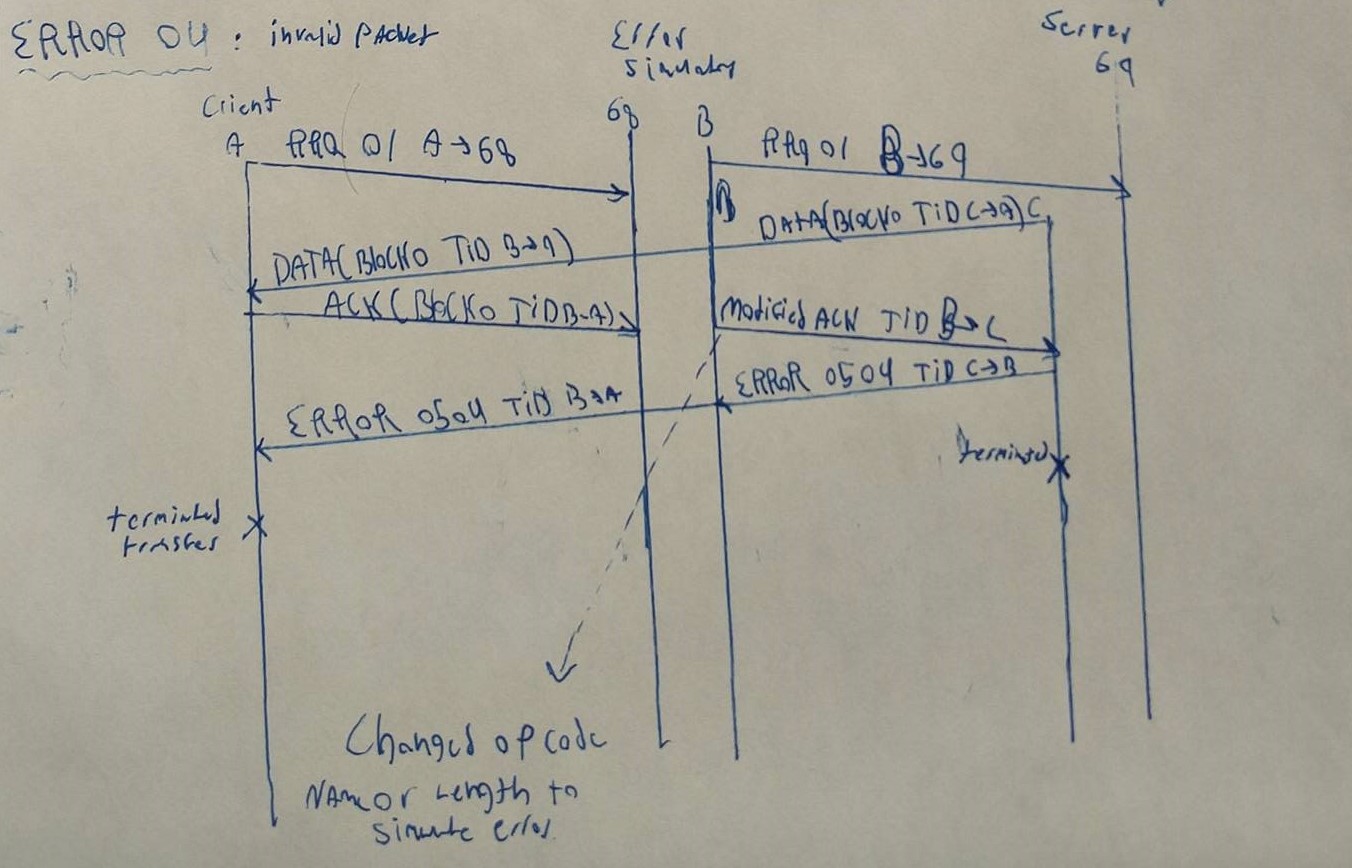 ERROR 04 : invalid PAcket
Error
Simulator
Server
69
Client
68
B
A RRQ 01 A→68
RRQ 01 B→69
DATA(BlocK0 TiD C→A) C
DATA(BlocK0 TiD B→A)
ACK(BlocK0 TiD B-A)
Modified ACK TiD B→C
ERROR 0504 TiD C→B
ERROR 0504 TiD B→A
terminted
terminted
transfer
Changed opcode
NAme or Length to
simute error